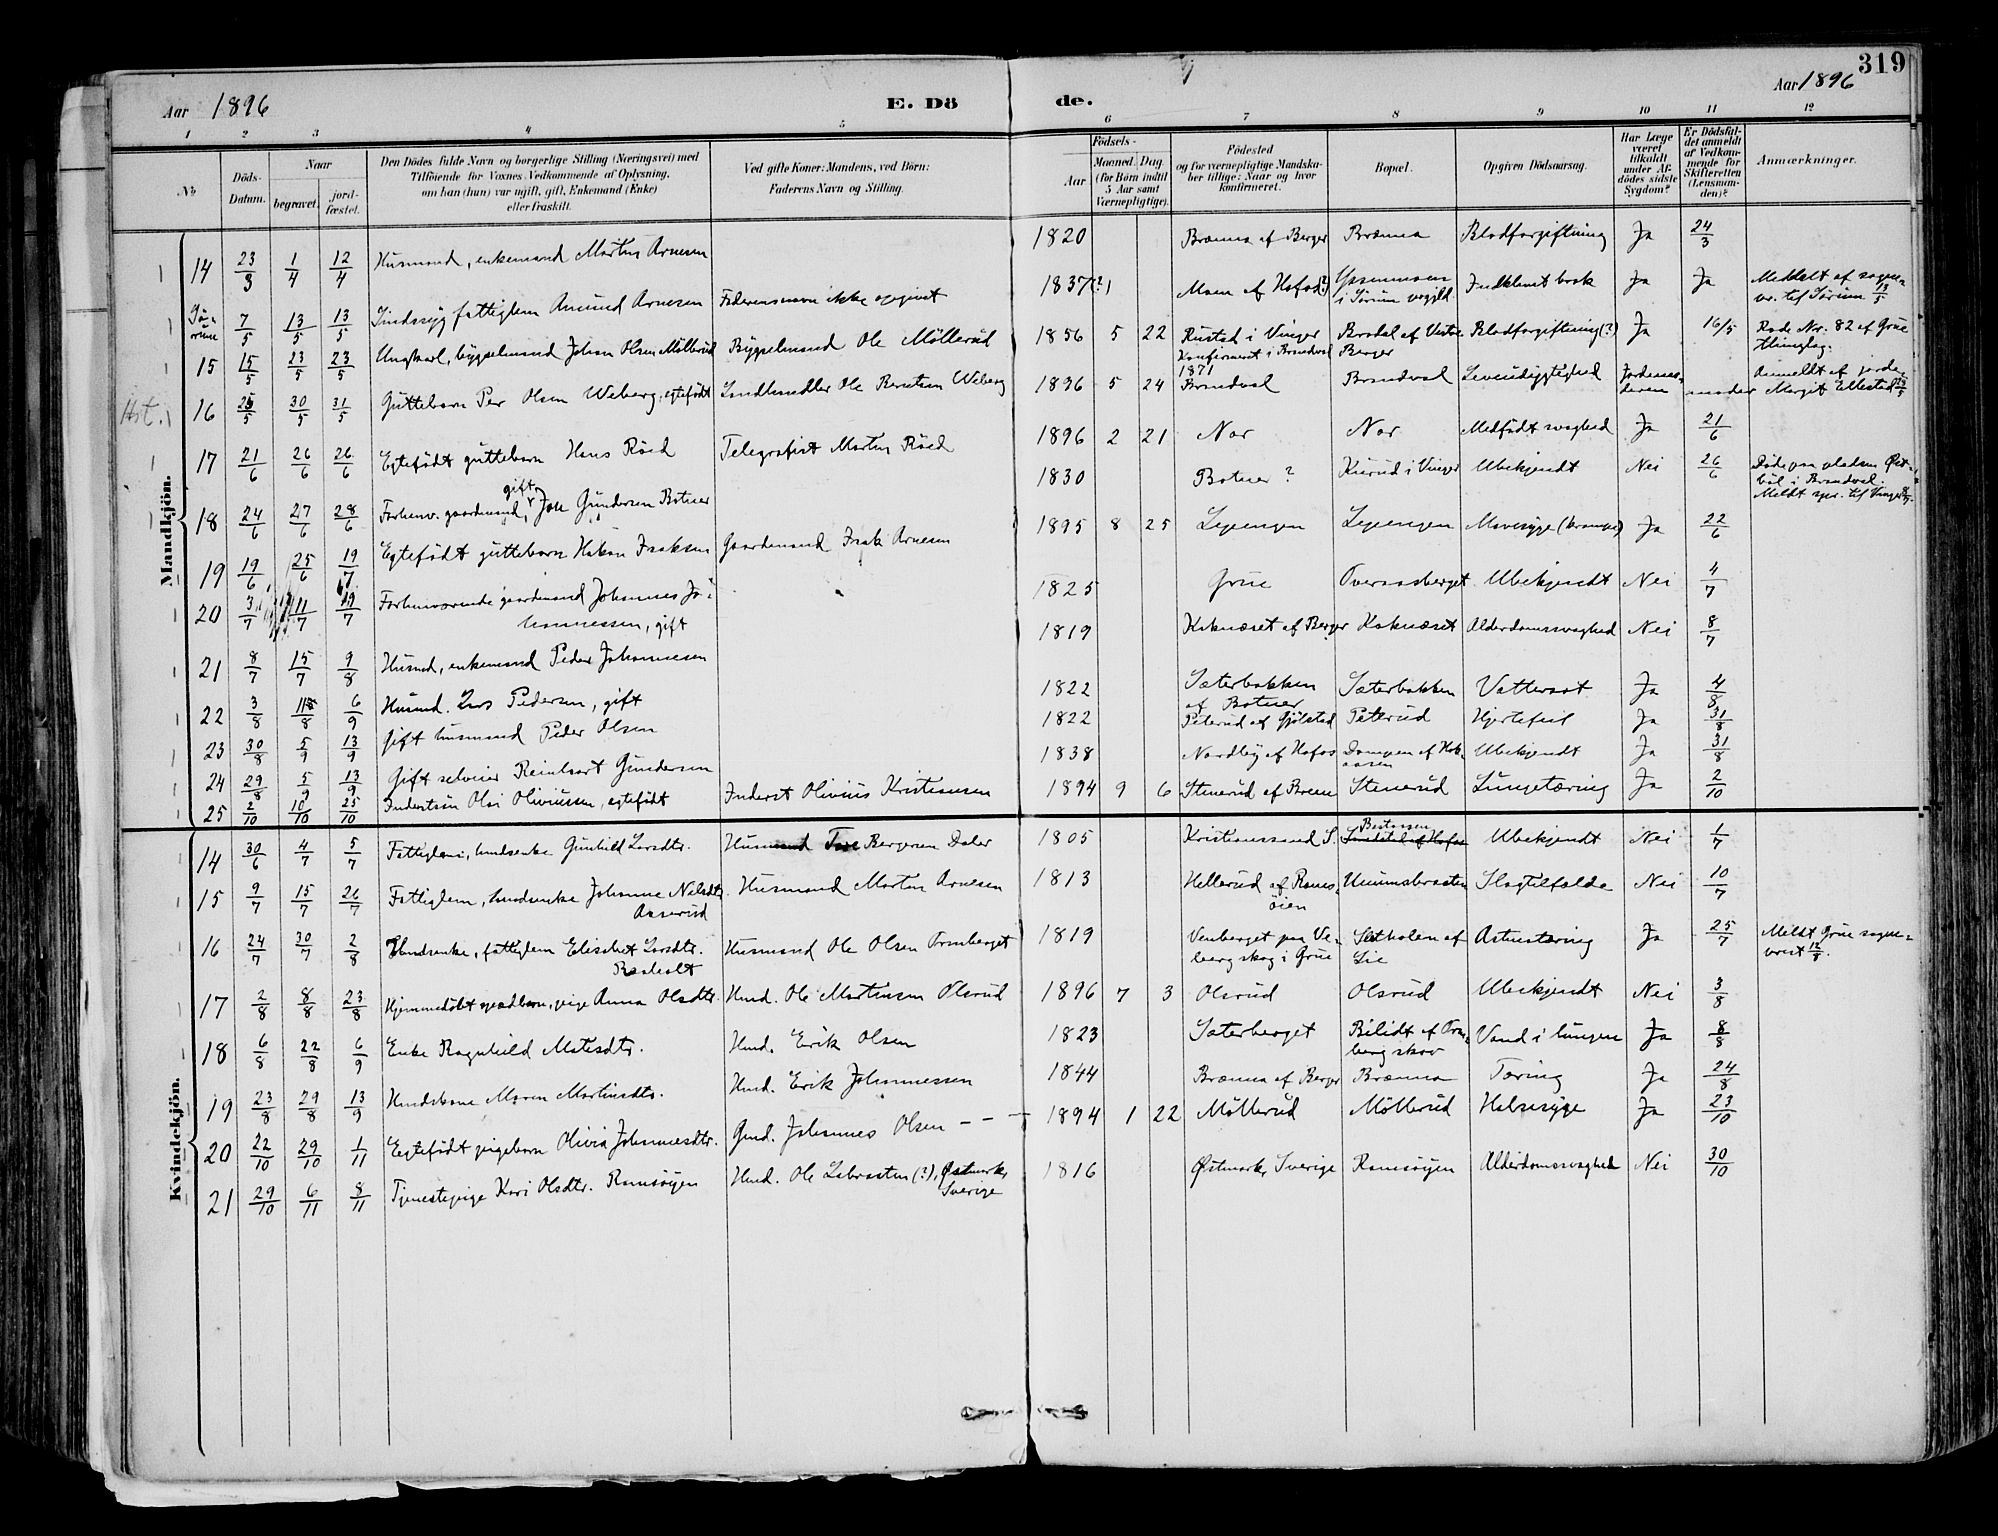 319
Aar 1896 E. Dö de. Aar 1896
1 2 3 4 5 6 7 8 9 10 11 12
No
Döds-Datum.
Naar
begravet.
jordfæstet.
Den Dödes fulde Navn og borgerlige Stilling (Næringsvei) med
Tilföiende for Voxnes Vedkommende af Oplysning,
om han (hun) var ugift, gift, Enkemand (Enke)
eller fraskilt.
Ved gifte Koner: Mandens, ved Börn:
Faderens Navn og Stilling.
Födsels-
Aar
Maaned. Dag.
(for Børn indtil
5 Aar samt
Værnepligtige).
Födested
og for værnepligtige Mandskaber tillige: Naar og hvor
konfirmeret.
Bopæl.
Opgiven Dödsaarsag.
Har Læge
været
tilkaldt
under Afdödes sidste
Sygdom?
Er Dödsfaldet anmeldt
af Vedkommende for
Skifteretten
(Lensmanden)?
Anmærkninger.
Mandkjön.
14 23/3 1/4 12/4 Husmand, enkemand Martin Arnesen 1820 Brænna af Berger Brænna Blodforgiftning Ja 24/3
7/5 13/5 13/5 Sindssyg fattiglem Amund Arnesen Faderens navn ikke opgivet 1837(?) Moen af Hofos(?) i Sørum Indklemt brok Ja Ja Meddelt af sogne-
pr. til Sørum 13/5
15 15/5 23/5 23/5 Ungkarl, bygselmand Johan Olsen Möllerud Bygselmand Ole Möllerud 1856 5 22 Rustad i Vinger Konfirmeret i Brandval 1871 Brodal af Vestre Berger Blodforgiftning(?) Ja 16/5 Rode Nr. 82 af Grue
thinglag.
Hst. 16 25/5 30/5 31/5 Guttebarn Per Olsen Weberg, egtefödt Landhandler Ole Berntsen Weberg 1896 5 24 Brandval Brandval Levendygtighed Jordemo-
deren Anmeldt af jorde-
moder Margit Ellestad 25/5
17 21/6 26/6 26/6 Egtefödt guttebarn Hans Röed Telegrafist Martin Röed 1896 2 21 Nor Nor Medfödt svaghed Ja 21/6
18 24/6 27/6 28/6 Forhenv. gaardmand, gift, Jon Gundersen Botner 1830 Botner? Kurud i Vinger Ubekjendt Nei 26/6 Døde paa pladsen Øst-
böl i Brandval.
Meldt spr. til Vinger
19 19/6 25/6 19/7 Egtefödt guttebarn Hakon Isaksen Gaardmand Isak Arnesen 1895 8 25 Lysengen Lysengen Mavesyge (krampe) Ja 22/6
20 3/7 11/7 19/7 Forhenværende gaardmand Johannes Jo-
hannessen, gift 1825 Grue Overaasberget Ubekjendt Nei 4/7
21 8/7 15/7 9/8 Husmd., enkemand Peder Johannesen 1819 Koknæset af Berger Koknæset Alderdomssvaghed Nei 8/7
22 3/8 6/9 Husmd. Lars Pedersen, gift 1822 Sæterbakken af Botner Sæterbakken Vattersot Ja 4/8
23 30/8 5/9 13/9 Gift husmand Peder Olsen 1822 Peterud af Gjölstad Peterud Hjertefeil Ja 31/8
24 29/8 5/9 13/9 Gift selveier Reinhart Gundersen 1838 Nordby af Hofos Ubekjendt Ja 31/8
25 2/10 10/10 25/10 Inderstsön Olai Oliviussen, egtefödt Inderst Olivius Kristiansen 1894 9 6 Stenerud af Stenerud Lungetæring Ja 2/10
Kvindekjön.
14 30/6 4/7 5/7 Fattiglem, husmdsenke Gunhild Larsdtr. Husmand Tore Bergersen Daler 1805 Kristianssand S. Ubekjendt Nei 1/7
15 9/7 15/7 26/7 Fattiglem, husmdsenke Johanne Nilsdtr.
Aaserud Husmand Morten Arnesen 1813 Hellerud af Roms-
öien Slagtilfælde Nei 10/7
16 24/7 30/7 2/8 Husmdsenke, fattiglem Elisabet Larsdtr.
Raaholt Husmand Ole Olsen Ornberget 1819 Venberget paa Ve-
berg skog i Grue af Lie Ja 25/7 Meldt Grue sogne-
prest 12/8.
17 2/8 8/8 23/8 Hjemmedöbt spædbarn, pige Anna Olsdtr. Husmd. Ole Martinsen Olsrud 1896 7 3 Olsrud Olsrud Ubekjendt Nei 3/8
18 6/8 22/8 6/9 Enke Ragnhild Matisdtr. Husmd. Erik Olsen 1823 Sæterberget Vand i lungen Ja 8/8
19 23/8 29/8 13/9 Husmdskone Maren Martinsdtr. Husmd. Erik Johannessen 1844 Brænna af Berger Brænna Tæring Ja 24/8
20 22/10 29/10 1/11 Egtefödt pigebarn Olivia Johannesdtr. Gmd. Johannes Olsen – – – 1894 1 22 Möllerud Möllerud Halssyge Ja 23/10
21 29/10 6/11 8/11 Tjenestepige Kari Olsdtr. Romsöyen Husmd. Ole Labraaten(?), Østmark,
Sverige 1816 Østmark, Sverige Romsöyen Alderdomssvaghed Nei 30/10